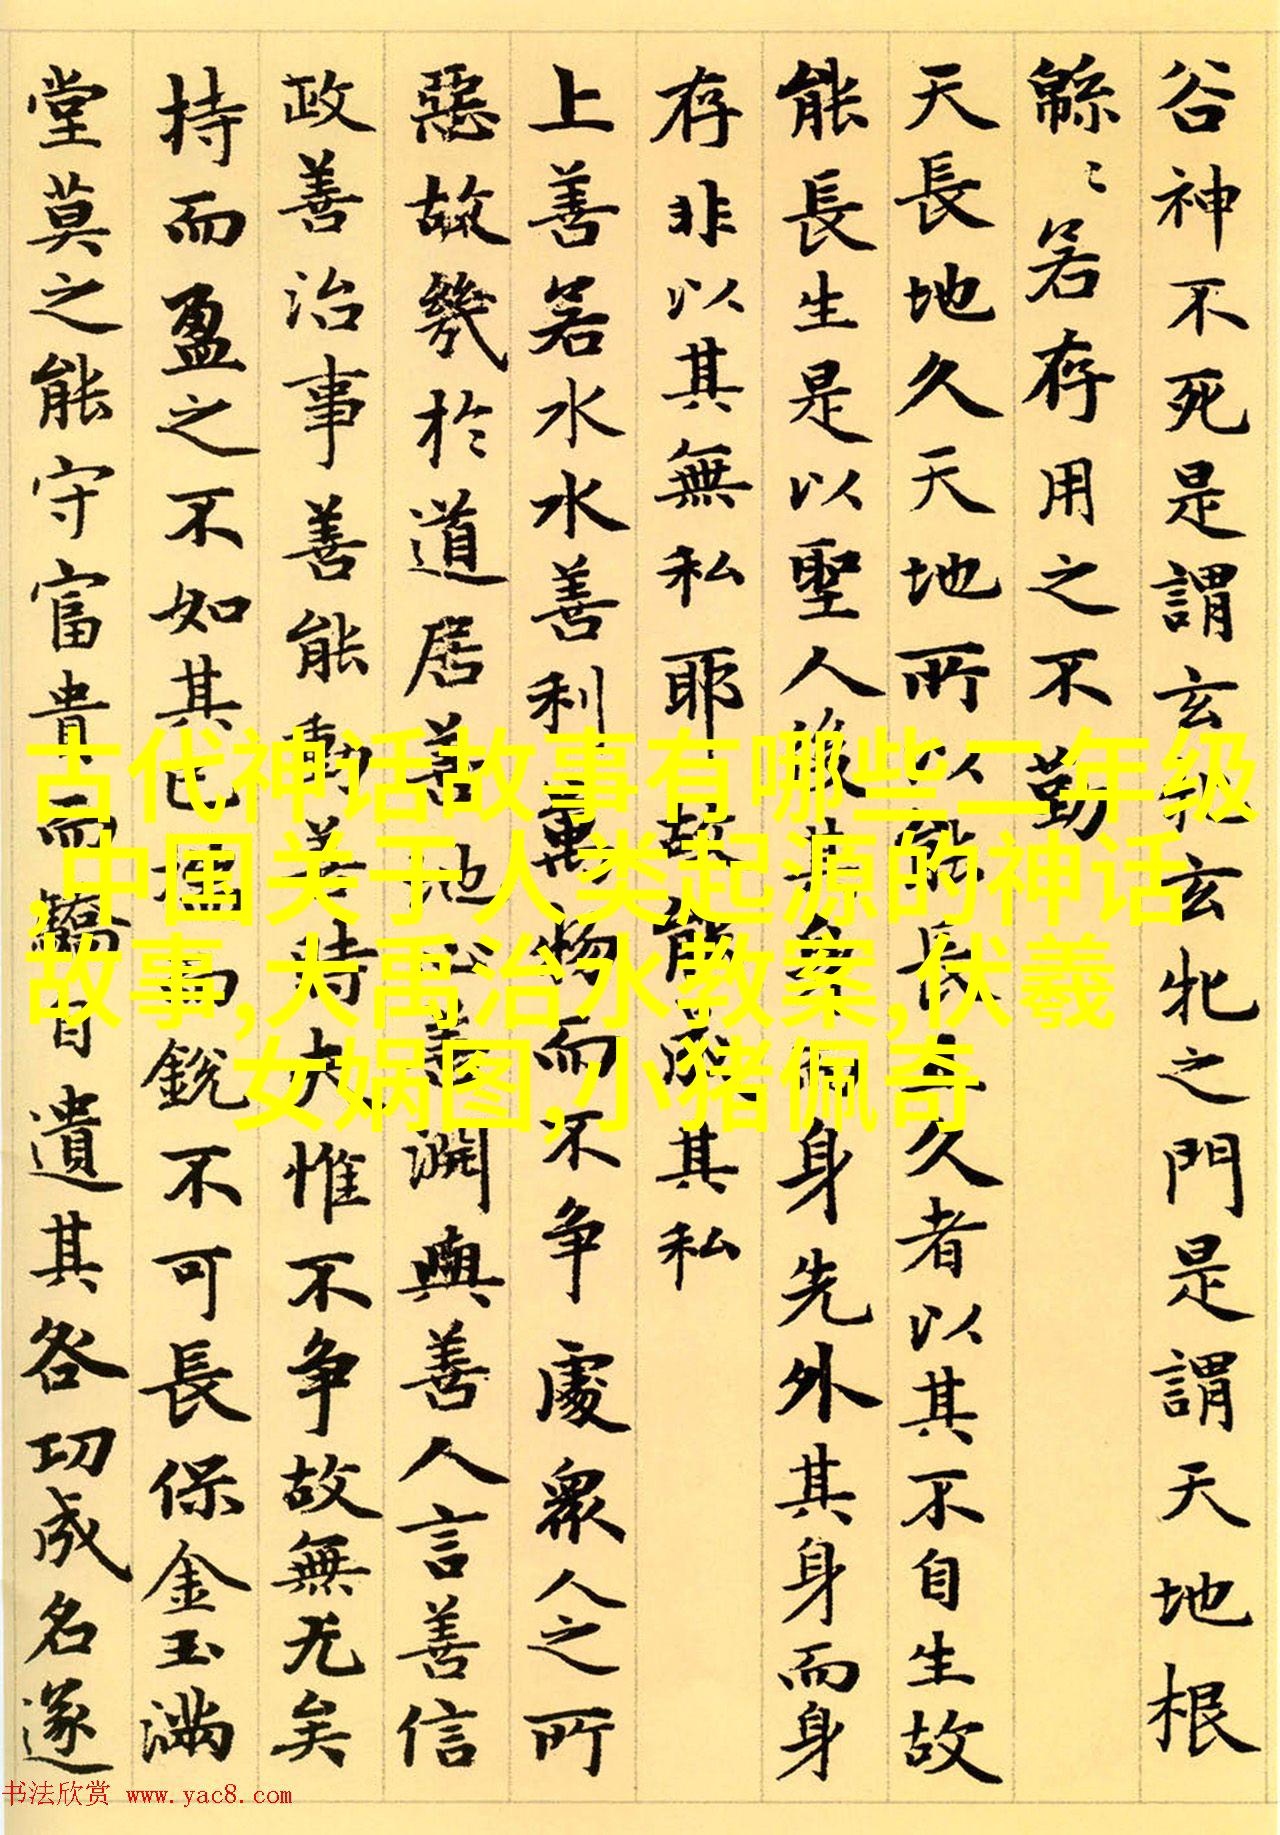 谷神不死是謂玄牝玄牝之門是謂天地根
緜〻若存用之不勤
天長地久天地所以能長且久者以其不自生故
能長生是以聖人後其身而身先外其身而身
存非以其無私耶故能成其私
上善若水水善利萬物而不争處衆人之所
惡故幾於道居善地心善渊與善人言善信
政善治事善能動善時夫惟不争故無尤矣
持而盈之不如其已揣而銳不可長保金玉滿
堂莫之能守富貴而驕自遺其咎功成名遂
古代神话故事有哪些二年级
,中国关于人类起源的神话
故事,大禹治水教案,伏羲
女娲图,小猪佩奇
书法欣赏 www.yac8.com